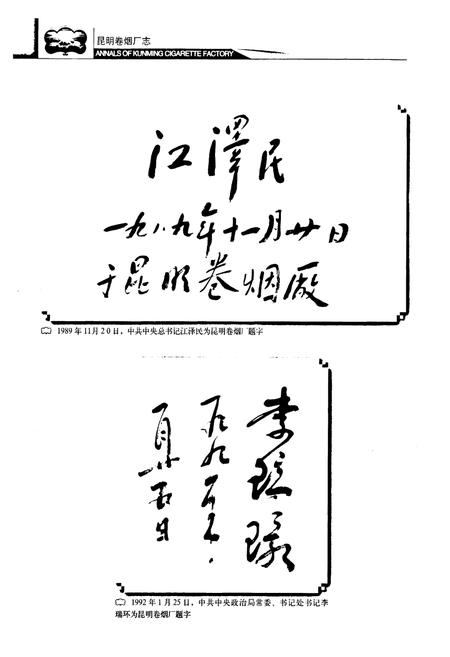 昆明卷烟厂志
ANNALS OF KUNMING CIGARETTE FACTORY
江澤民
一九八九年十一月廿日
于昆明卷烟厰
1989年11月20日，中共中央总书记江泽民为昆明卷烟厂题字
李瑞环
一九九二年
一月廿五日
1992年1月25日，中共中央政治局常委、书记处书记李
瑞环为昆明卷烟厂题字